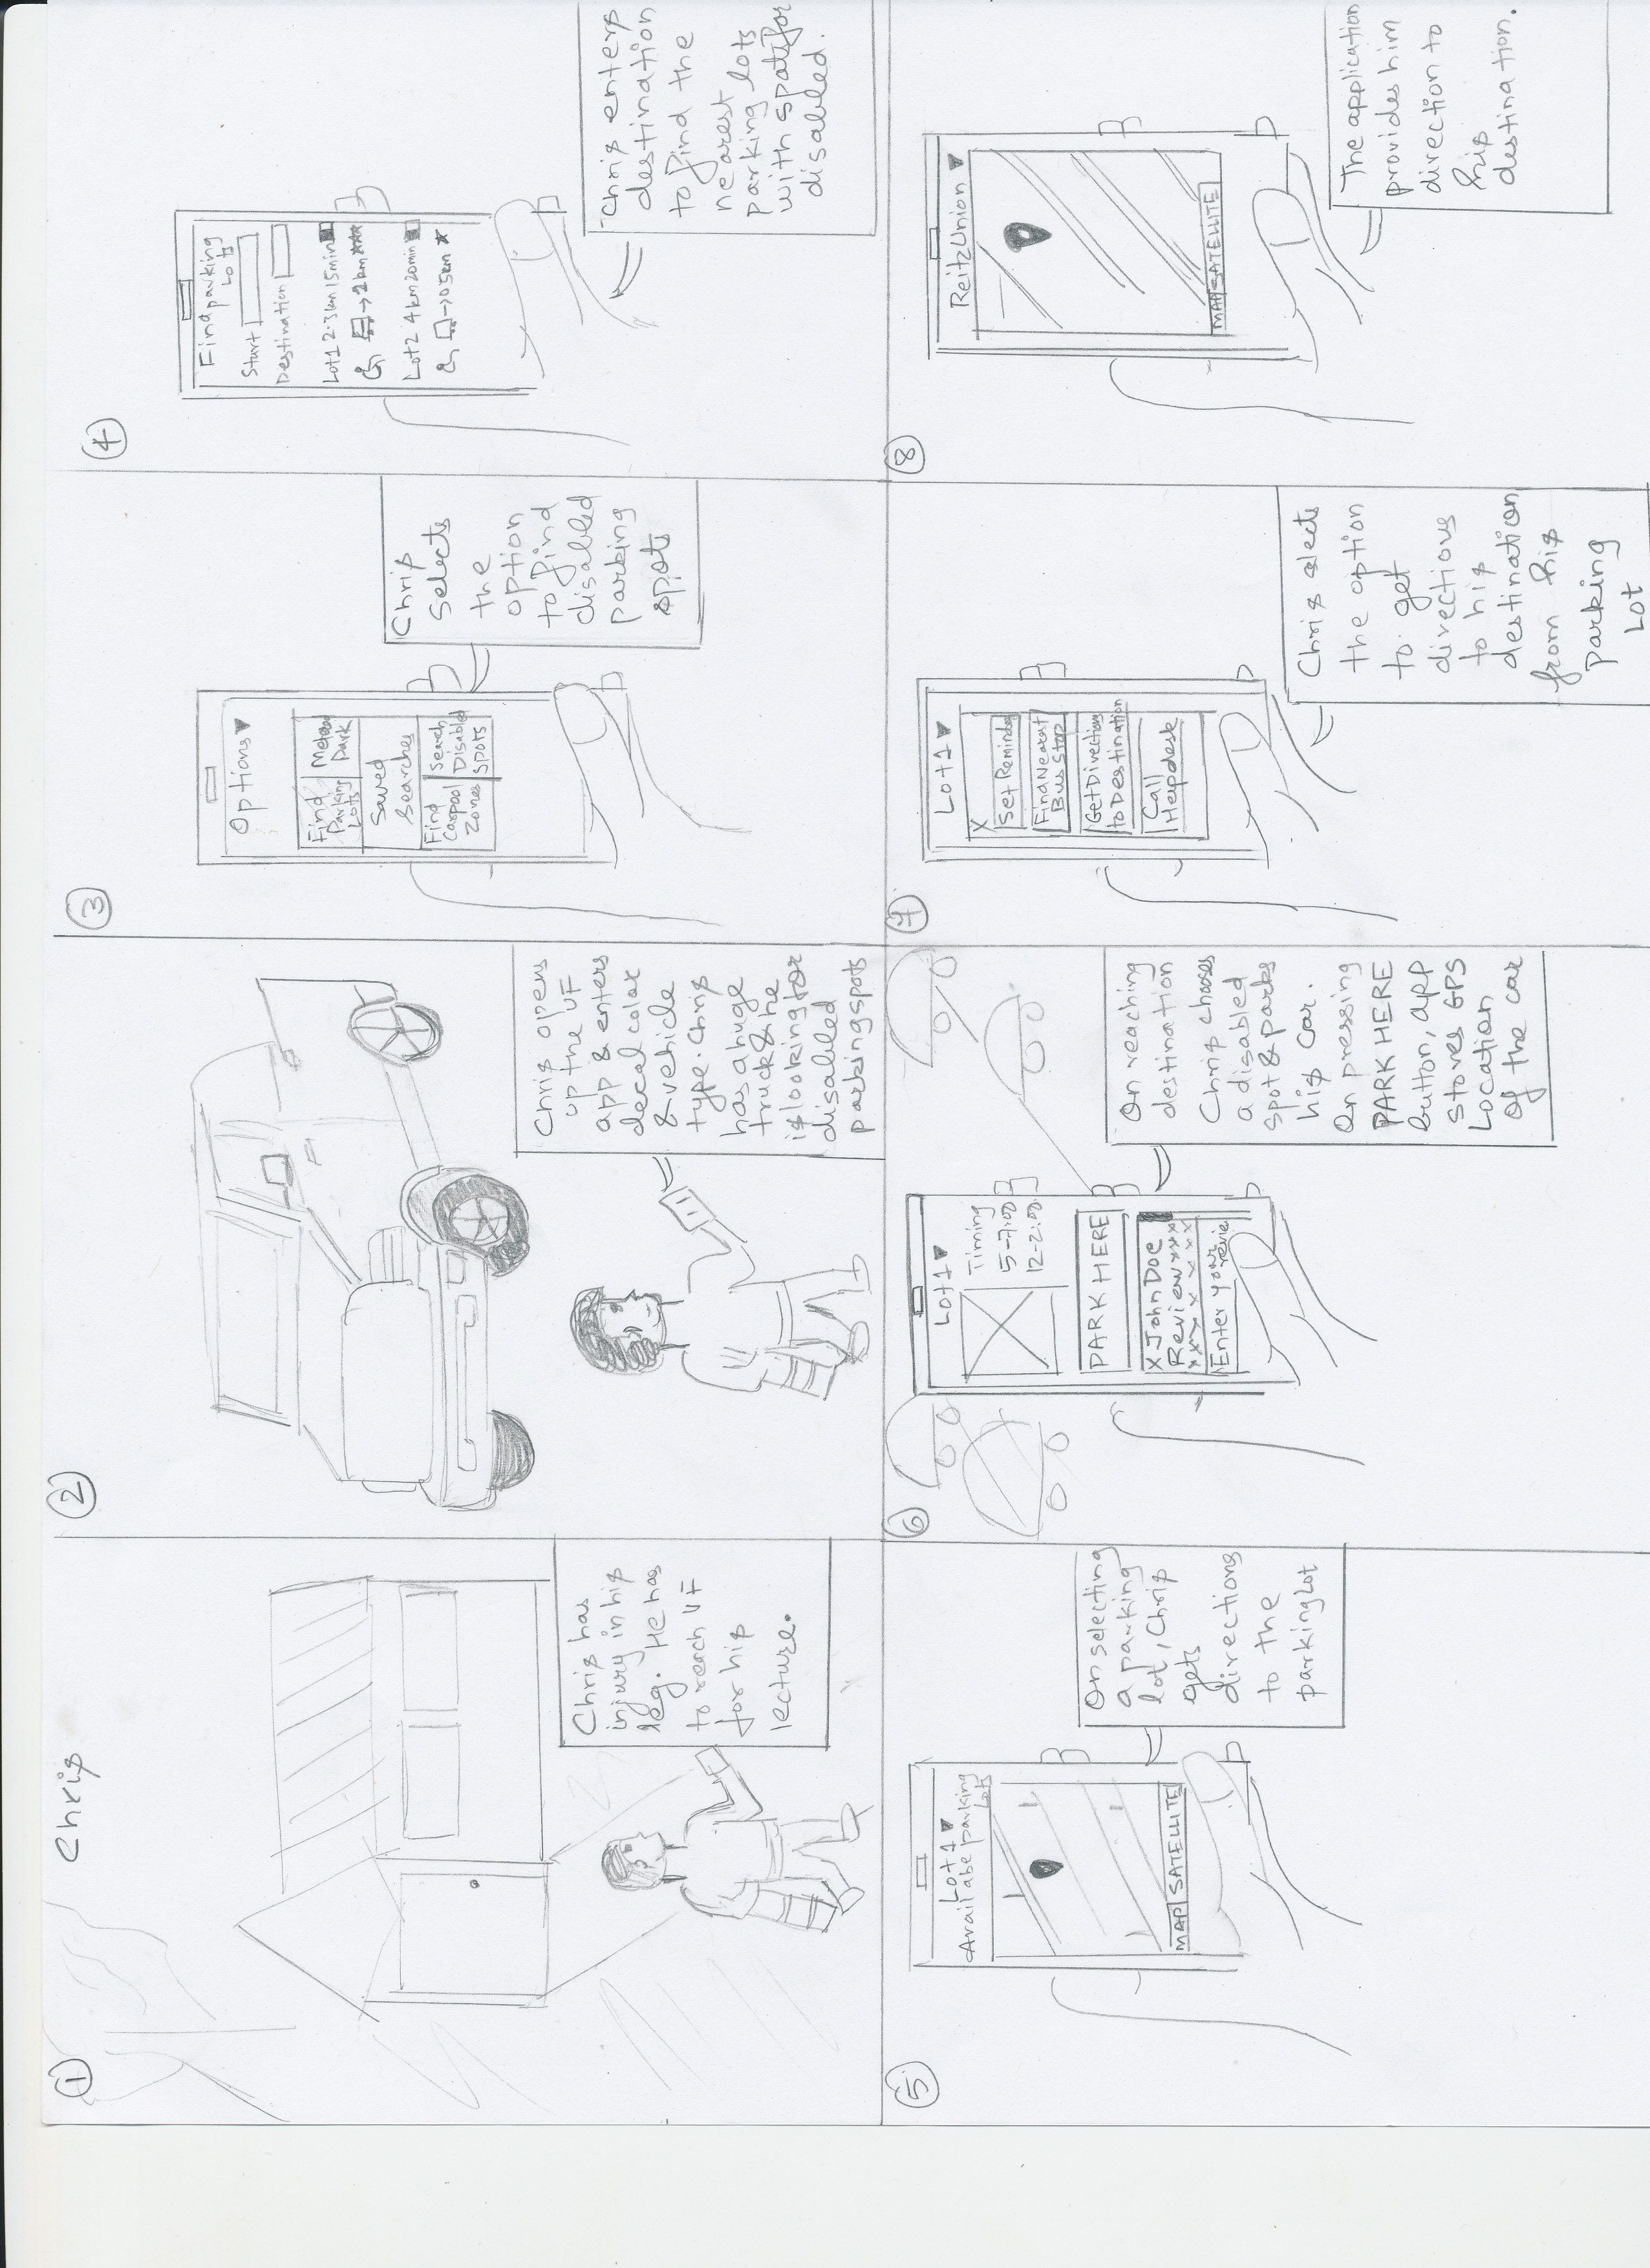 Chris
1
Chris has
injury in his
leg. He has
to reach UF
for his
lecture.
2
Chris opens
up the UF
app & enters
decal color
& vehicle
type. Chris
has a huge
truck & he
is looking for
disabled
parking spots
3
Options
Find
Parking
Lots
Meter
Park
Saved
Searches
Find
Carpool
Zones
Search
Disabled
Spots
Chris
selects
the
option
to find
disabled
parking
spots
4
Find parking
Lots
Start
Destination
Lot1 2.3km 15min
→ 2km ***
Lot2 4km 20min
→ 0.5km *
Chris enters
destination
to find the
nearest
parking lots
with spots for
disabled.
5
Lot1
Availabe parking
Lots
MAP SATELLITE
On selecting
a parking
lot, Chris
gets
directions
to the
parking lot
6
Lot1
Timing
5-7:00
12-2:00
PARK HERE
X John Doe
Review
Enter your
On reaching
destination
Chris chooses
a disabled
spot & parks
his car.
On pressing
PARK HERE
button, app
stores GPS
Location
of the car
7
Lot1
X
Set Reminder
Find Nearest
Bus Stop
Get Direction
to Destination
Call
Helpdesk
Chris slects
the option
to get
directions
to his
destination
from his
parking
Lot
8
Reitz Union
MAP SATELLITE
The application
provides him
direction to
his
destination.